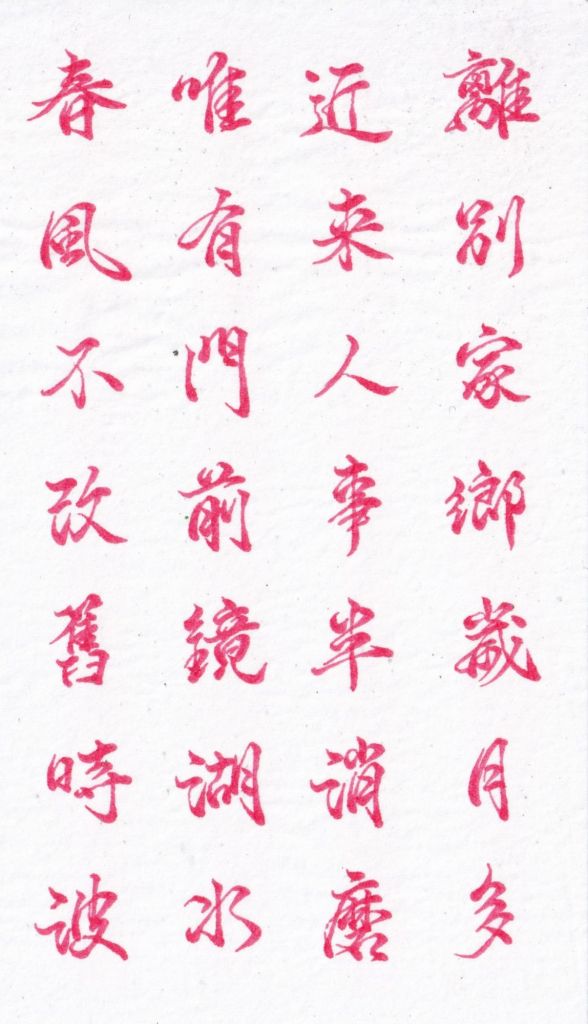 離別家鄉歲月多
近来人事半消磨
唯有門前鏡湖水
春風不改舊時波